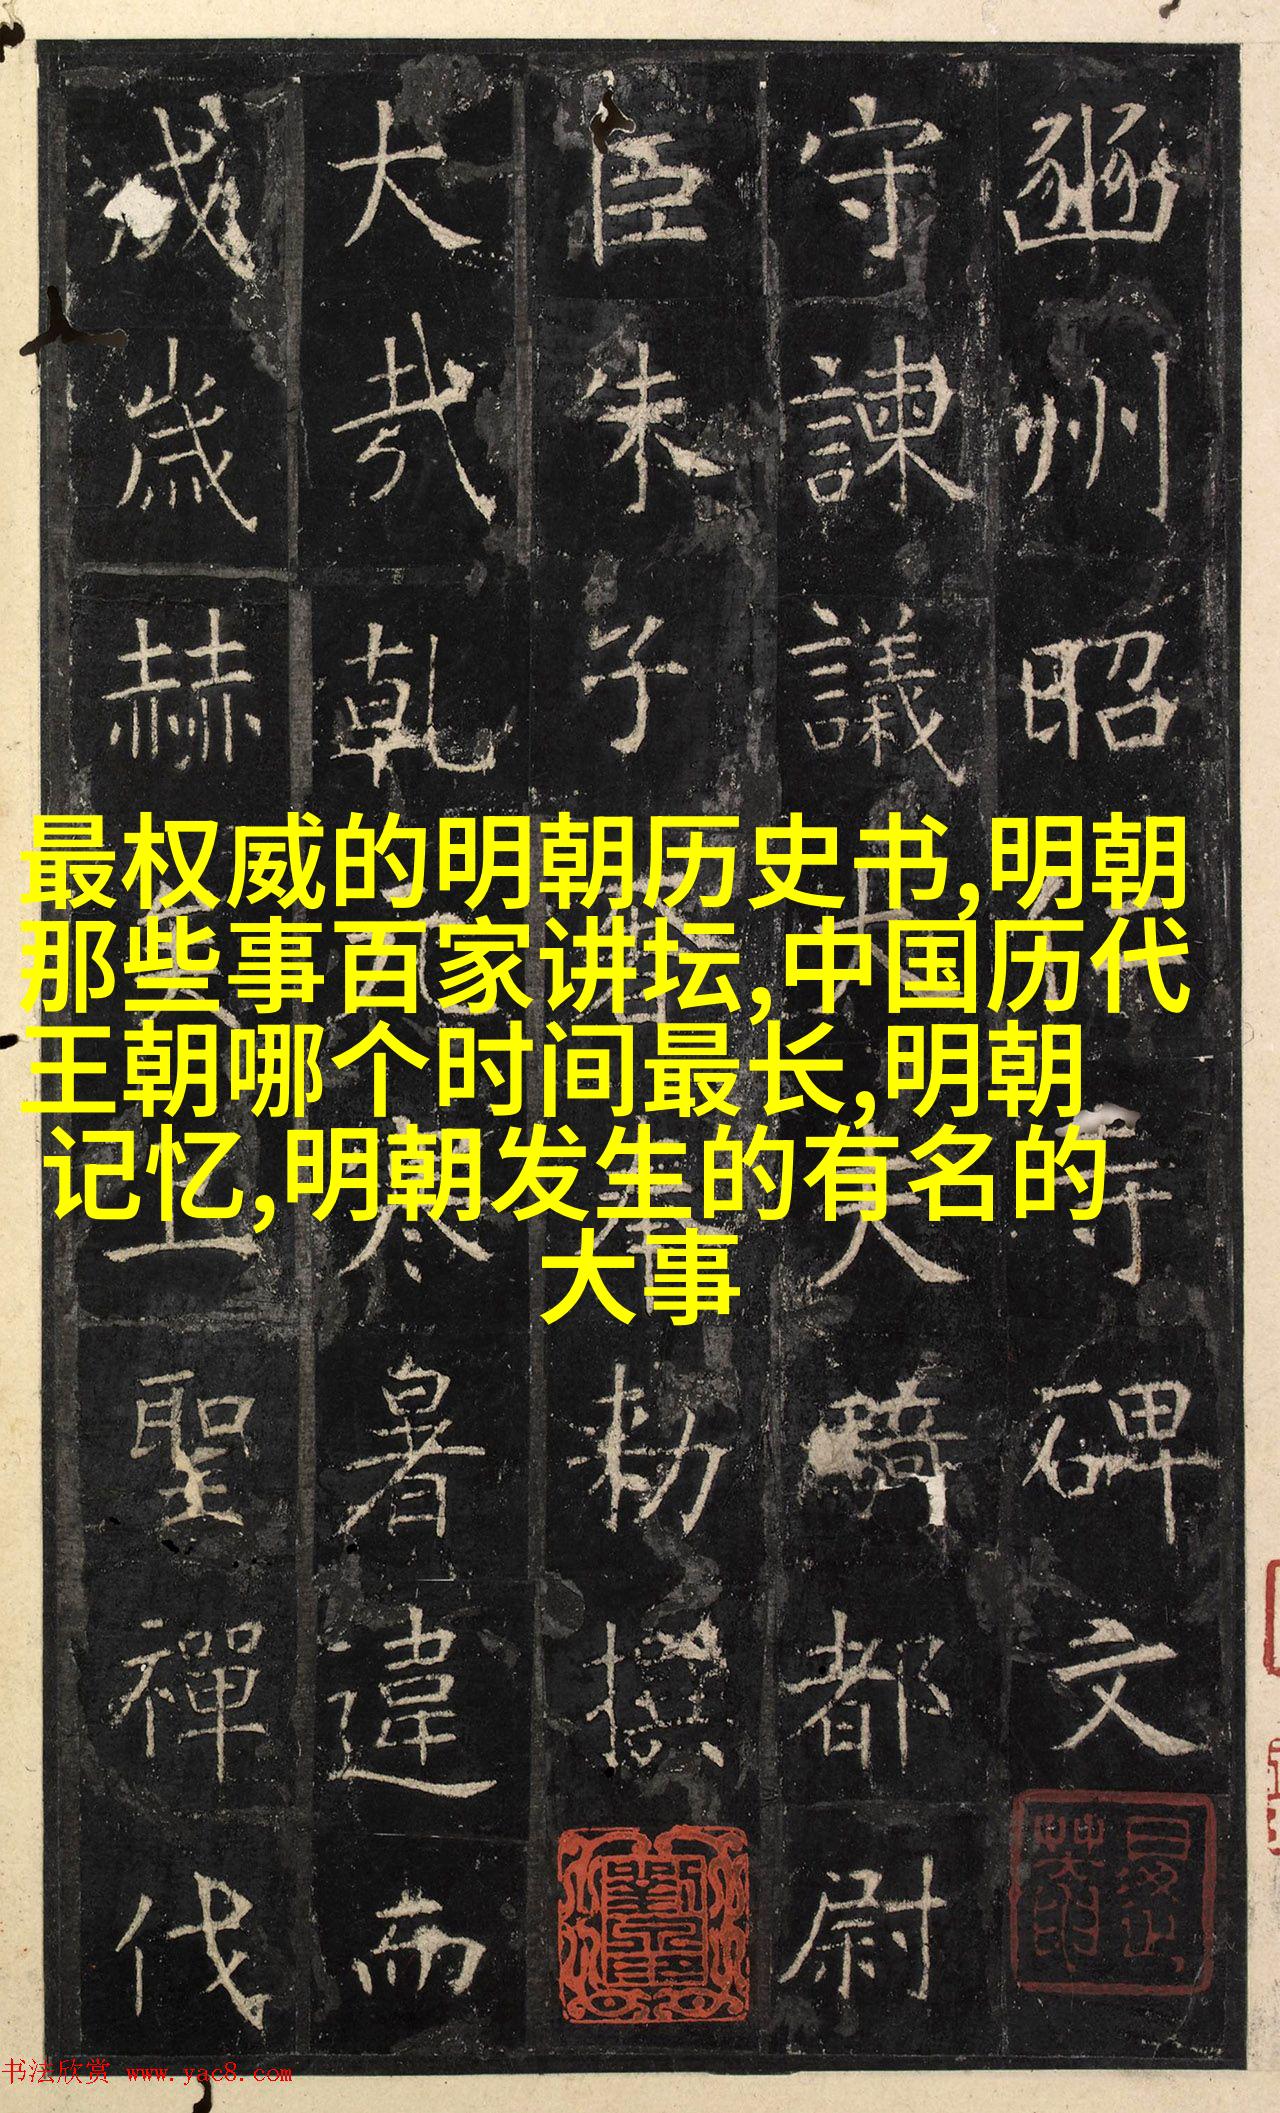 豳州昭仁寺碑文
守諫議大夫騎都尉
臣朱子奢奉勅撰
大哉乾元寒暑違而
成歲赫矣上聖禪代
最权威的明朝历史书,明朝
那些事百家讲坛,中国历代
王朝哪个时间最长,明朝
记忆,明朝发生的有名的
大事
书法欣赏 www.yac8.com